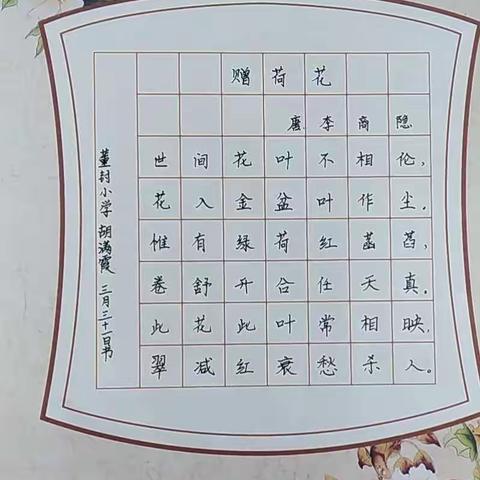 赠荷花
唐 李商隐
世间花叶不相伦，
花入金盆叶作尘。
惟有绿荷红菡萏，
卷舒开合任天真。
此花此叶常相映，
翠减红衰愁杀人。
董封小学 胡满霞 三月三十一日书